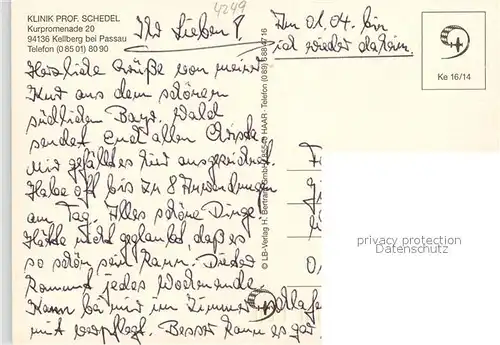 KLINIK PROF. SCHEDEL
Kurpromenade 20
94136 Kellberg bei Passau
Telefon (0 85 01) 80 90
4249
Ihr Lieben!
Am 01.04. bin
ich wieder daheim.
Ke 16/14
Herzliche Grüße von meiner
Kur aus dem schönen
südlichen Bayr. Wald
sendet Euch allen
Mir gefällt es hier ausgezeichnet.
Habe oft bis zu 8 Anwendungen
am Tag. Alles schöne Dinge
Hätte nicht geglaubt, daß es
so schön sein kann. Dieter
kommt jedes Wochenende
Kann bei mir im Zimmer schlafen
mit verpflegt. Besser kann es gar
© LB-Verlag H. Bertram GmbH HAAR · Telefon (0 89)
privacy protection
Datenschutz